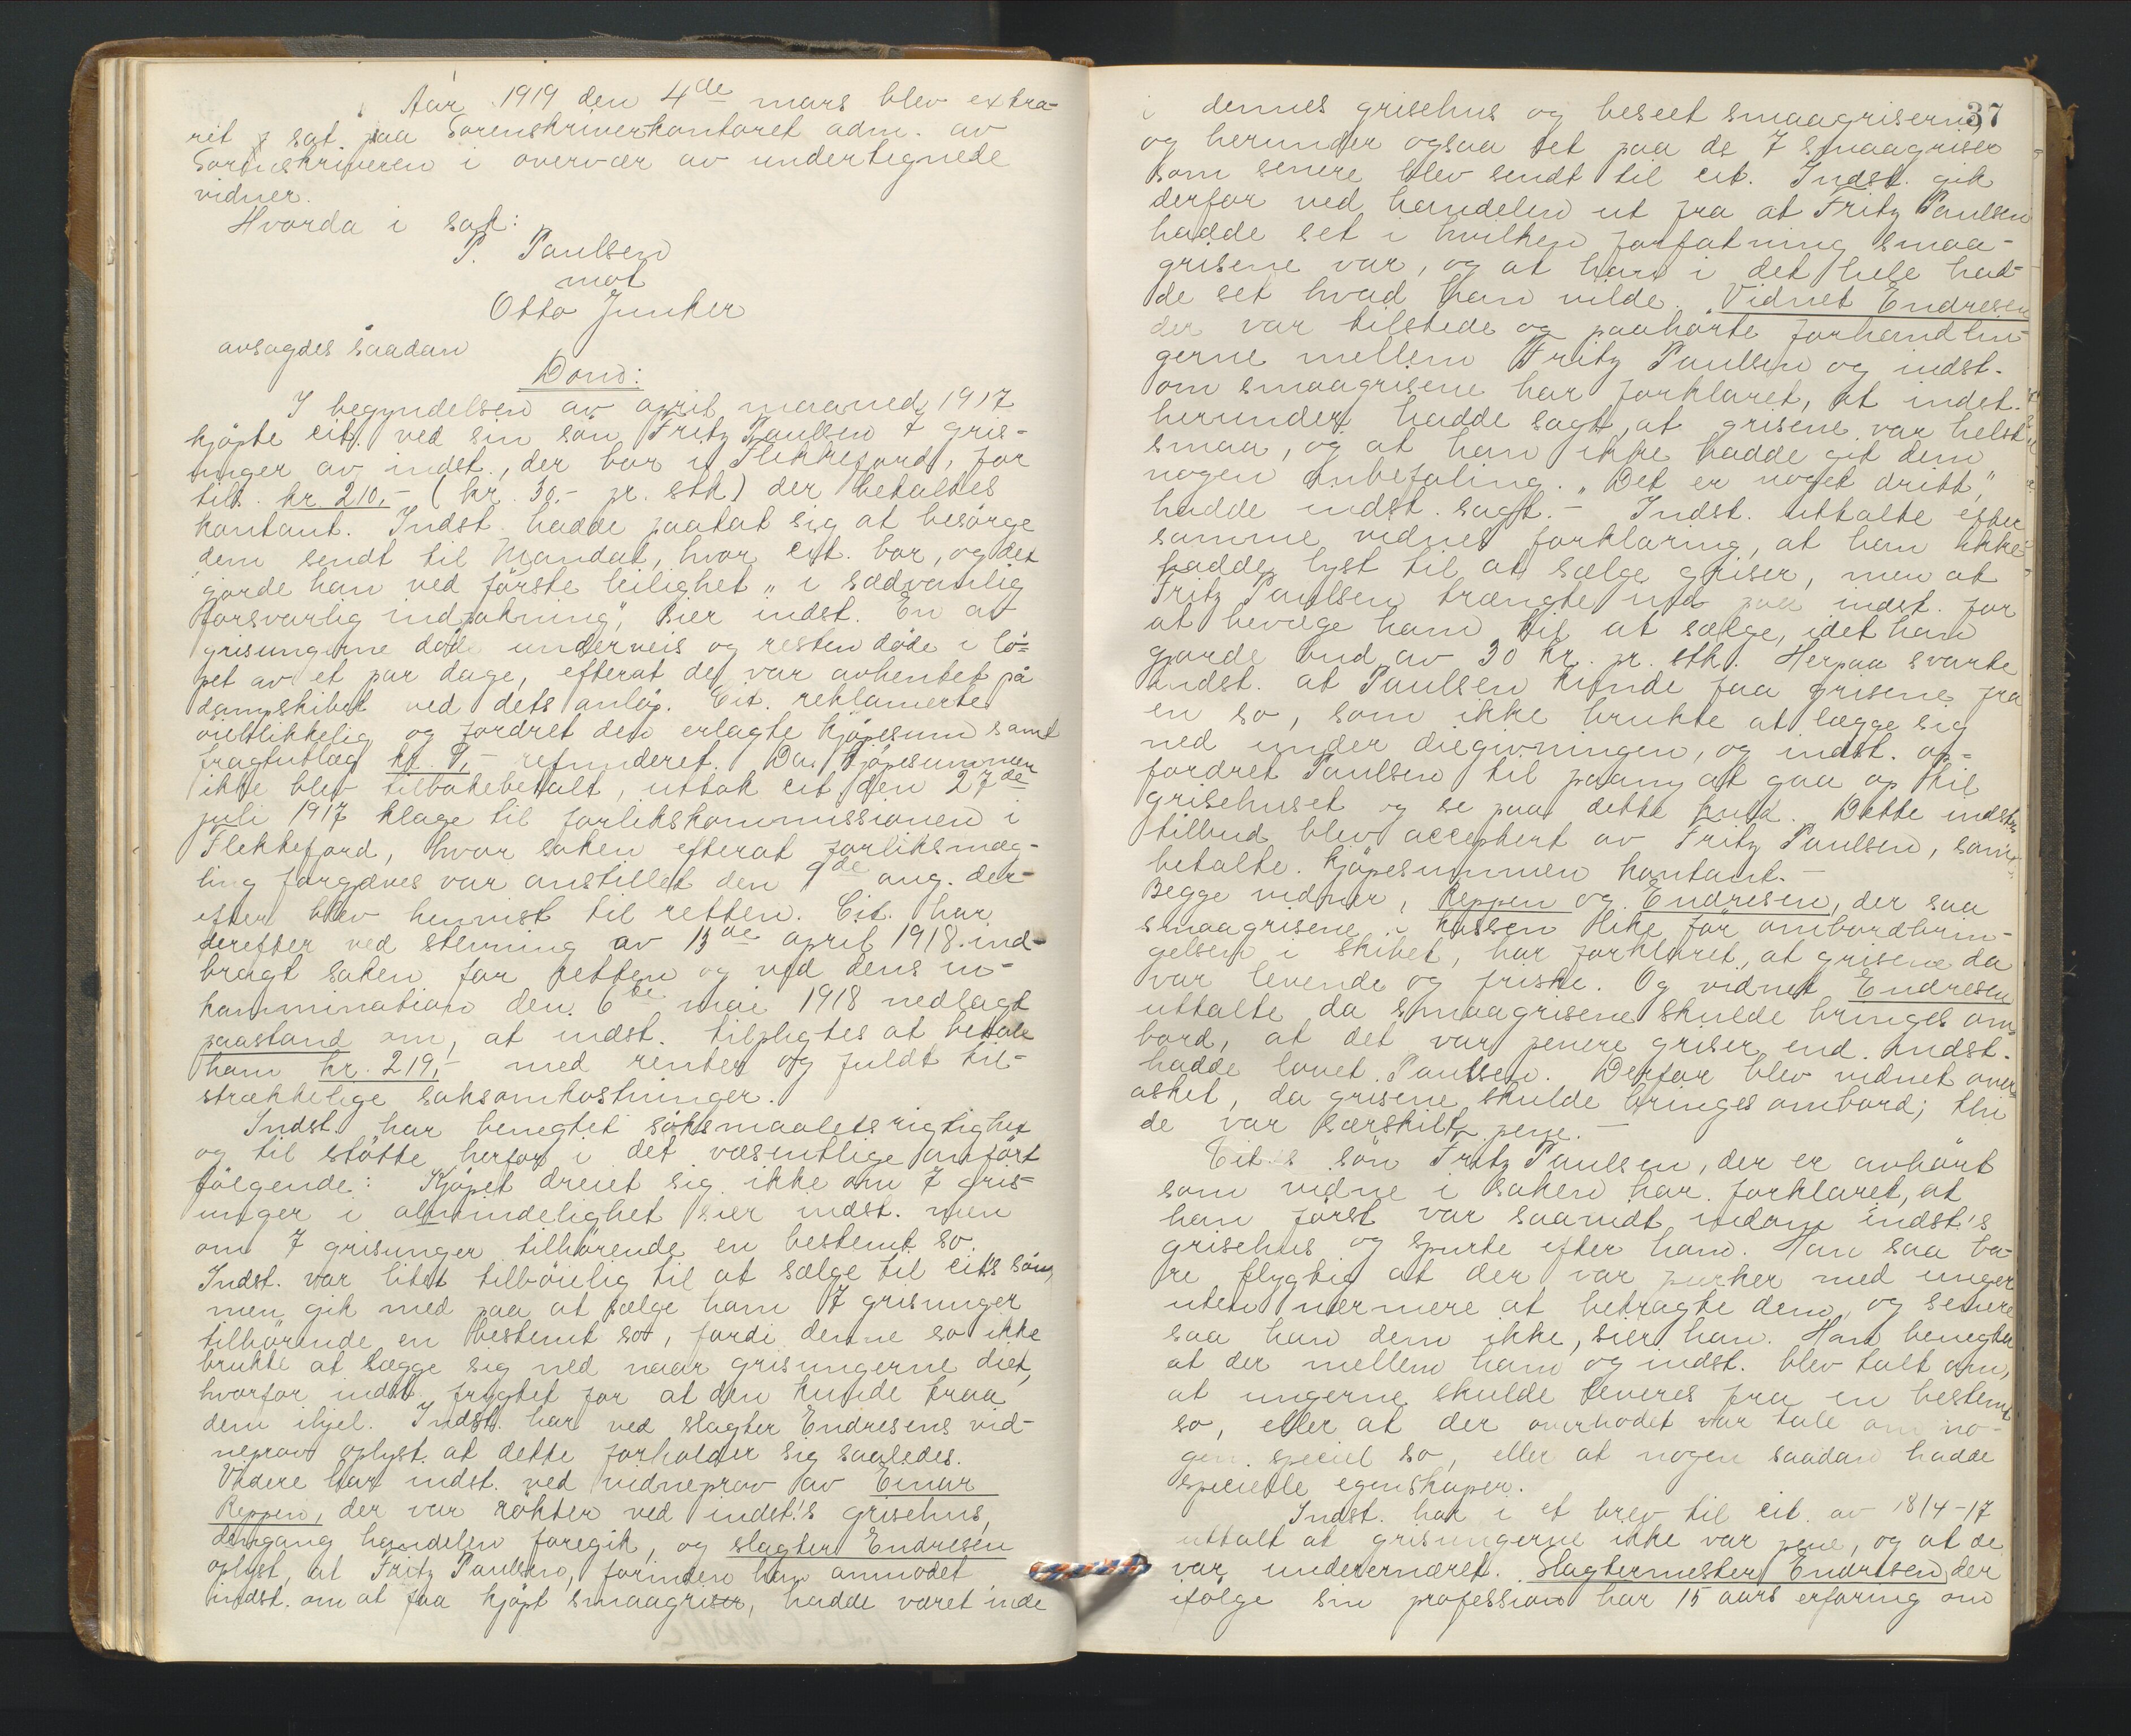 Aar 1919 den 4de mars blev extra-
ret sat paa Sorenskriverkontoret adm. av
Sorenskriveren i overvær av undertegnede
vidner.
Hvorda i sak:
P. Paulsen
mot
Otto Junker
avsagdes saadan
Dom:
I begyndelsen av april maaned 1917
kjöpte cit. ved sin sön Fritz Paulsen 7 gris-
unger av indst., der bor i Flekkefjord, for
tils. kr 210,- (kr. 30.- pr. stk) der betaltes
kontant. Indst. hadde paatat sig at besörge
dem sendt til Mandal, hvor cit. bor, og det
gjorde han ved förste leilighet "i sædvanlig
forsvarlig indpakning", sier indst. En av
grisungerne döde underveis og resten döde i lö-
pet av et par dage, efterat de var avhentet på
dampskibet ved dets anlöp. Cit. reklamerte
öieblikkelig og fordret den erlagte kjöpesum samt
fragtutlæg kr. 9,- refunderet. Da kjöpesummen
ikke blev tilbakebetalt, uttok cit. den 27de
juli 1917 klage til forlikskommissionen i
Flekkefjord, hvor saken efterat forliksmæg-
ling forgjæves var anstillet den 9de aug. der-
efter blev henvist til retten. Cit. har
derefter ved stevning av 13de april 1918 ind-
bragt saken for retten og ved dens in-
kammination den 6te mai 1918 nedlagt
paastand om, at indst. tilpligtes at betale
ham kr. 219,- med renter og fuldt til-
strækkelige saksomkostninger.
Indst. har benegtet söksmaalets rigtighet
og til stötte herfor i det væsentlige anfört
fölgende: Kjöpet dreiet sig ikke om 7 gris-
unger i almindelighet sier indst. men
om 7 grisunger tilhörende en bestemt so.
Indst. var litet tilböielig til at sælge til cits sön,
men gik med paa at sælge ham 7 grisunger
tilhörende en bestemt so, fordi denne so ikke
brukte at lægge sig ned naar grisungerne diet,
hvorfor indst. frygtet for at den kunde traa
dem ihjel. Indst. har ved slagter Endresens vid-
neprov oplyst at dette forholder sig saaledes.
Videre har indst. ved vidneprov av Einar
Reppen, der var rökter ved indst.'s grisehus,
dengang handelen foregik, og slagter Endresen
oplyst, at Fritz Paulsen, forinden han anmodet
indst. om at faa kjöpt smaagriser, hadde været inde
37
i dennes grisehus og beseet smaagriserne,
og herunder ogsaa set paa de 7 smaagriser
som senere blev sendt til cit. Indst. gik
derfor ved handelen ut fra at Fritz Paulsen
hadde set i hvilken forfatning smaa-
grisene var, og at han i det hele had-
de set hvad han vilde. Vidnet Endresen
der var tilstede og paahörte forhandlin-
gerne mellem Fritz Paulsen og indst.
om smaagrisene har forklaret, at indst.
herunder hadde sagt, at grisene var helst
smaa, og at han ikke hadde git dem
nogen anbefaling. "Det er noget dritt,"
hadde indst. sagt. - Indst. uttalte efter
samme vidnes forklaring, at han ikke
hadde lyst til at sælge griser, men at
Fritz Paulsen trængte ind paa indst. for
at bevæge ham til at sælge, idet han
gjorde bud av 30 kr. pr. stk. Herpaa svarte
indst. at Paulsen kunde faa grisene fra
en so, som ikke brukte at lægge sig
ned under diegivningen, og indst. op-
fordret Paulsen til paany at gaa op til
grisehuset og se paa dette kuld. Dette indst.s
tilbud blev acceptert av Fritz Paulsen, som
betalte kjöpesummen kontant. -
Begge vidner, Reppen og Endresen, der saa
smaagrisene i kassen like för ombordbrin-
gelsen i skibet, har forklaret, at grisene da
var levende og friske. Og vidnet Endresen
uttalte da smaagrisene skulde bringes om-
bord, at det var penere griser end indst.
hadde lovet Paulsen. Derfor blev vidnet over-
rasket, da grisene skulde bringes ombord; thi
de var særskilt pene. -
Cit.s sön Fritz Paulsen, der er avhört
som vidne i saken har forklaret, at
han först var saavidt indom indst.'s
grisehus og spurte efter ham. Han saa ba-
re flygtig at der var purker med unger
uten nærmere at betragte dem, og senere
saa han dem ikke, sier han. Han benegter
at der mellem ham og indst. blev talt om,
at ungerne skulde leveres fra en bestemt
so, eller at der overhodet var tale om no-
gen speciel so, eller at nogen saadan hadde
specielle egenskaper.
Indst. har i et brev til cit. av 18/4-17
uttalt at grisungerne ikke var pene, og at de
var underernæret. Slagtermester Endresen, der
ifölge sin profession har 15 aars erfaring om